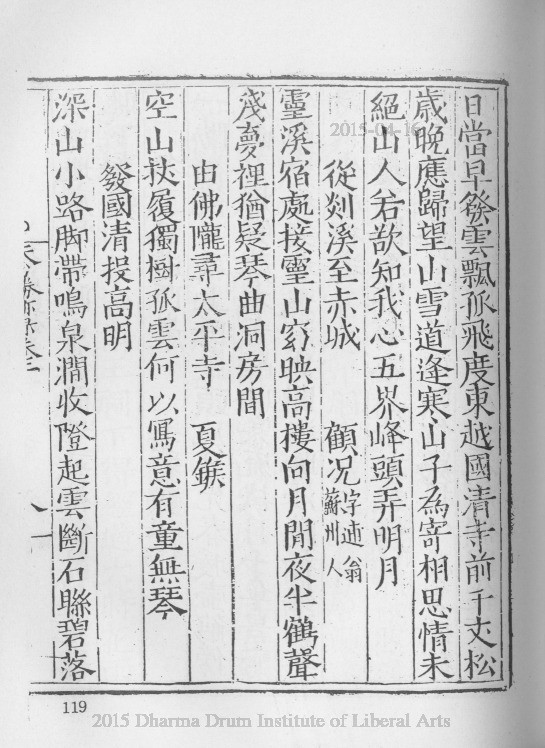 日當早發雲飄孤飛度東越國清寺前千丈松
歲晚應歸望山雪道逢寒山子為寄相思情未
絕山人若欲知我心五界峰頭弄明月
從剡溪至赤城 顧況字逋翁蘇州人
靈溪宿處接靈山窈映高摟向月閒夜半鶴聲
殘夢裡猶疑琴曲洞房間
由佛隴尋太平寺 夏鍭
空山扶履獨樹孤雲何以寫意有童無琴
發國清投高明
深山小路脚帶鳴泉澗收隥起雲斷石聯碧落
119
2015-04-16
2015 Dharma Drum Institute of Liberal Arts